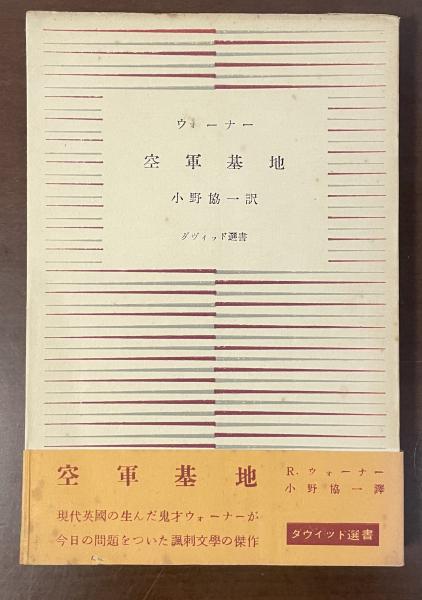 ウォーナー
空軍基地
小野協一訳
ダヴィッド選書
空軍基地
R.ウォーナー
小野協一譯
現代英國の生んだ鬼才ウォーナーが
今日の問題をついた諷刺文學の傑作
ダヴイッド選書